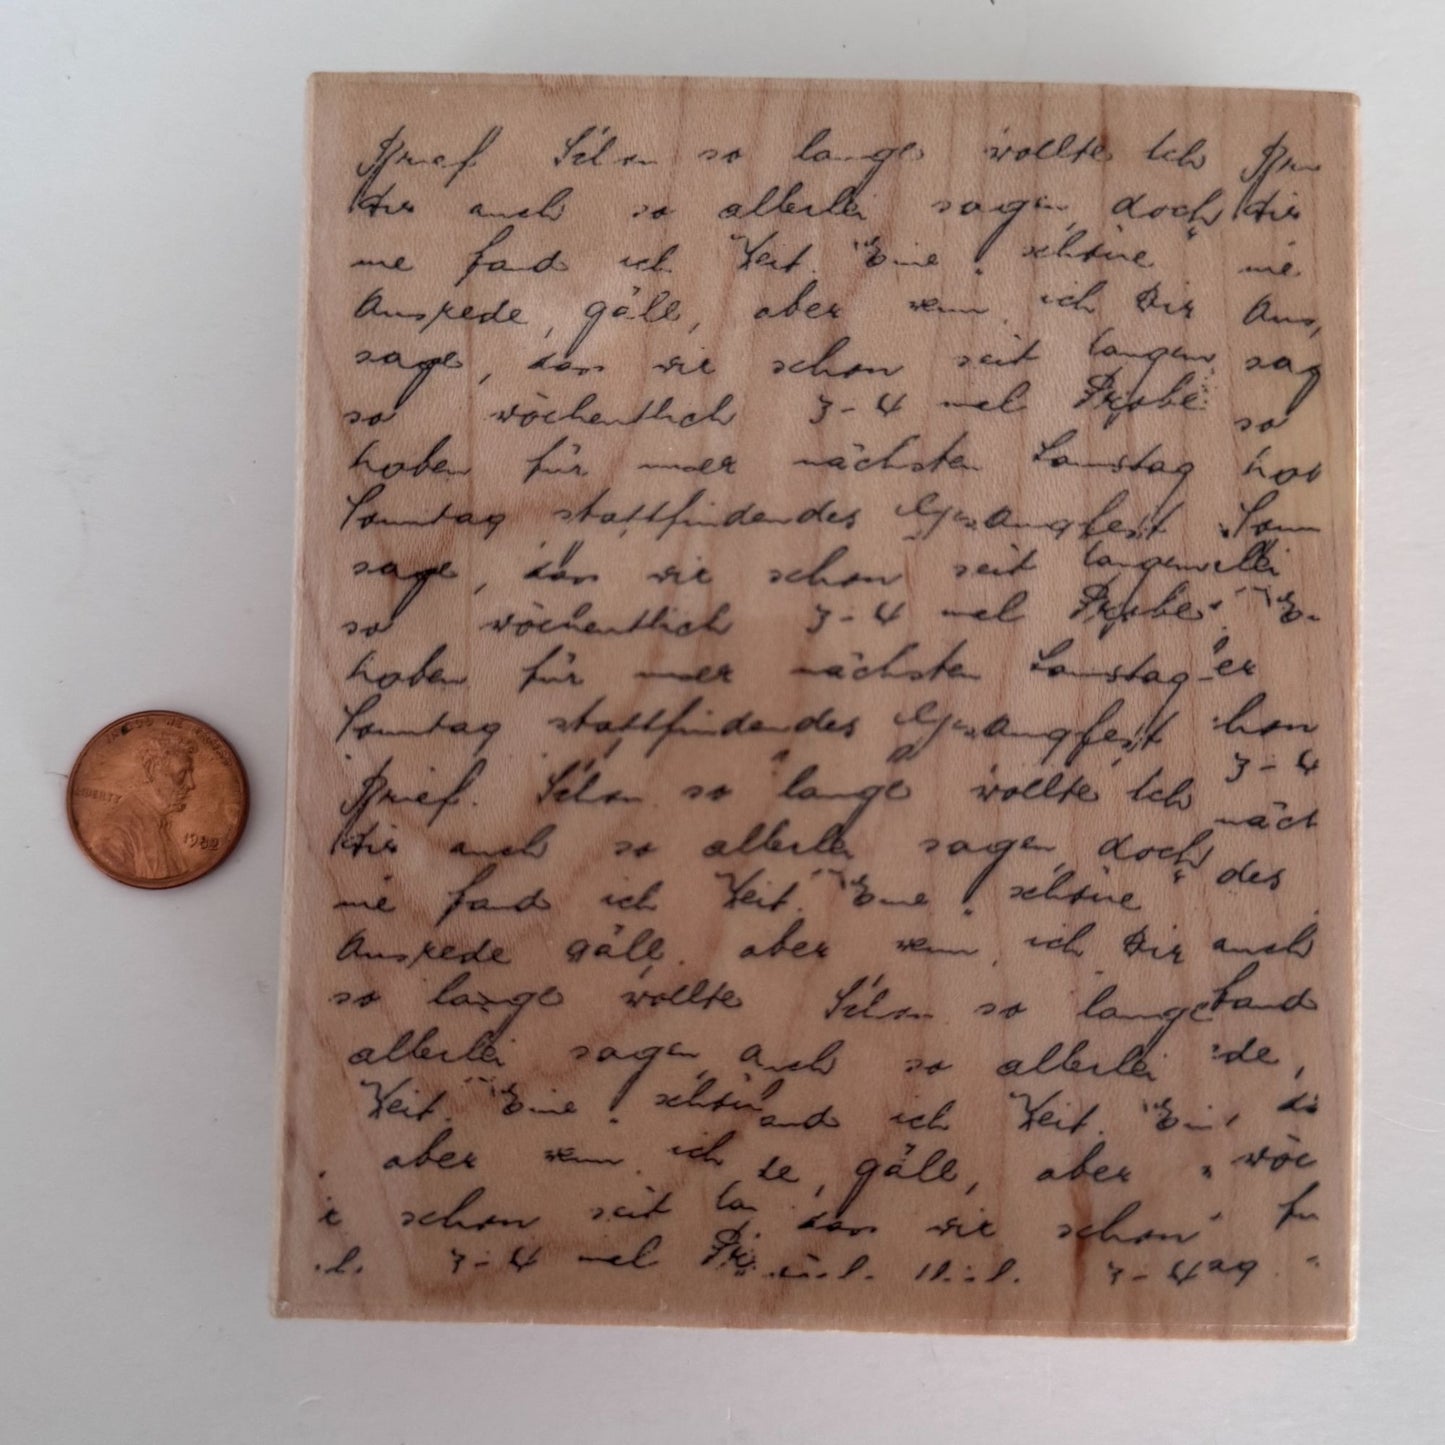 Brief. Schon so lange wollte ich
dir auch so allerlei sagen, doch dir
nie fand ich Zeit. "Eine schöne" nie
Ausrede, gäll, aber wenn ich dir Aus,
sage, dass wir schon seit langem sag
so wöchentlich 3-4 mal Probe so
haben für unser nächsten Samstag hab
Sonntag stattfindendes Gesangfest Sonn
sage, dass wir schon seit langem
so wöchentlich 3-4 mal Probe
haben für unser nächsten Samstag er
Sonntag stattfindendes Gesangfest hon
3-4
Brief. Schon so lange wollte ich
näch
dir auch so allerlei sagen, doch
des
nie fand ich Zeit. "Eine schöne"
Ausrede gäll. aber wenn, ich dir auch
so lange wollte Schon so lange fand
allerlei sagen auch so allerlei de,
Zeit. "Eine schön and ich Zeit.
aber wenn ich de, gäll, aber wöc
schon seit la dass wir schon fü
3-4 mal Pr 3-4 ag
LIBERTY
1982